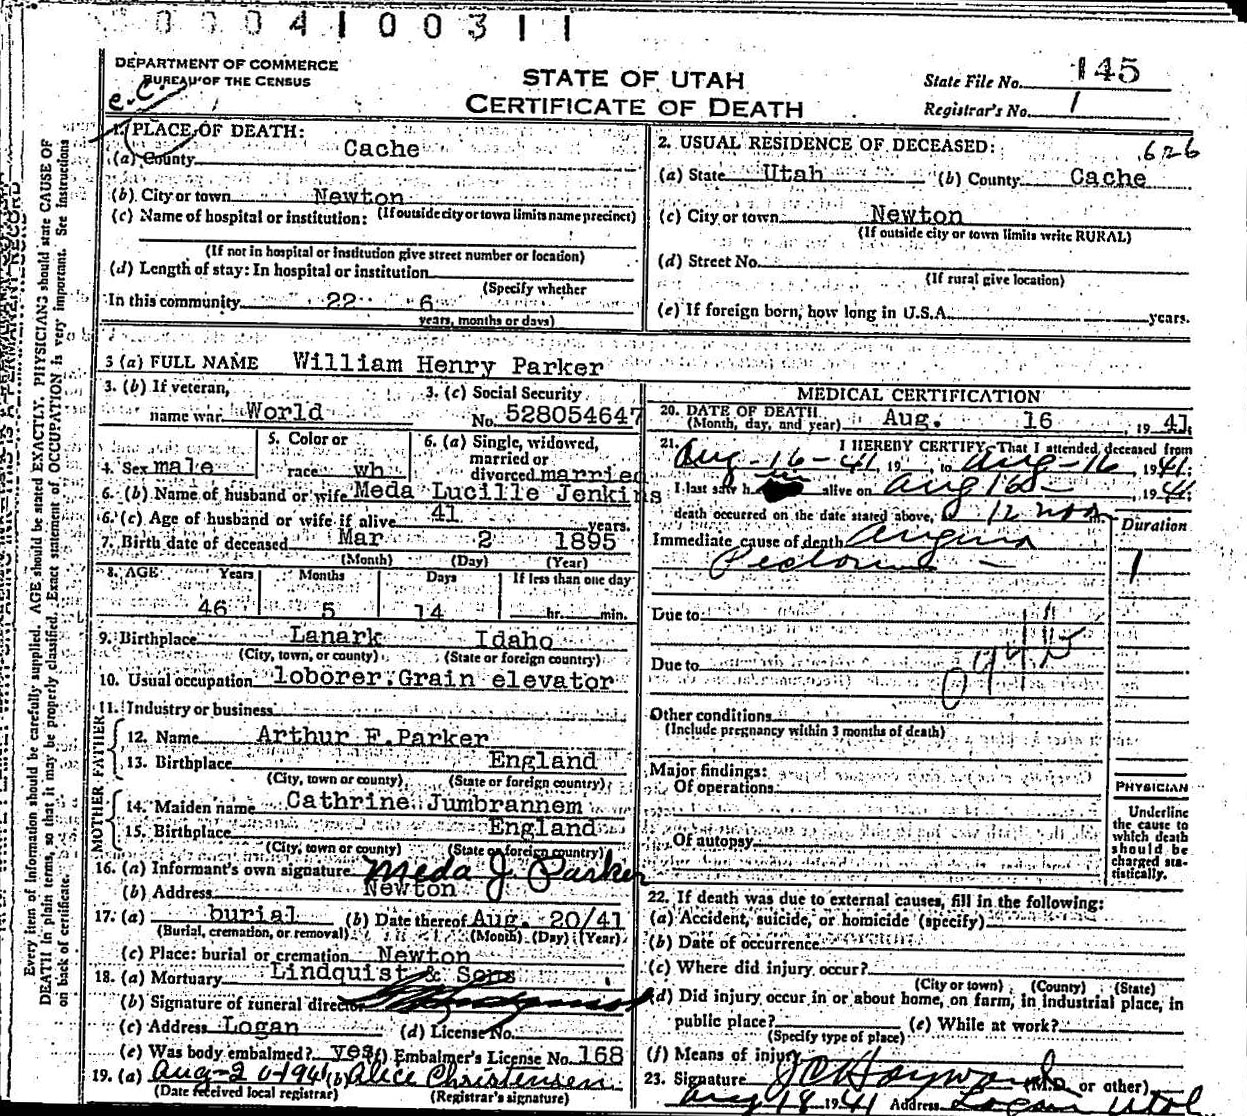 0004100311
DEPARTMENT OF COMMERCE
BUREAU OF THE CENSUS
e.C.
STATE OF UTAH
CERTIFICATE OF DEATH
State File No. 145
Registrar's No. 1
1. PLACE OF DEATH:
(a) County Cache
(b) City or town Newton
(c) Name of hospital or institution: (If outside city or town limits name precinct)
(If not in hospital or institution give street number or location)
(d) Length of stay: In hospital or institution
(Specify whether
In this community 22 6
years, months or days)
2. USUAL RESIDENCE OF DECEASED: 626
(a) State Utah (b) County Cache
(c) City or town Newton
(If outside city or town limits write RURAL)
(d) Street No.
(If rural give location)
(e) If foreign born, how long in U.S.A. years.
3 (a) FULL NAME William Henry Parker
3. (b) If veteran,
name war World
3. (c) Social Security
No. 528054647
4. Sex male
5. Color or
race wh
6. (a) Single, widowed,
married or
divorced married
6. (b) Name of husband or wife Meda Lucille Jenkins
6. (c) Age of husband or wife if alive 41 years.
7. Birth date of deceased Mar 2 1895
(Month) (Day) (Year)
8. AGE Years Months Days If less than one day
46 5 14 hr. min.
9. Birthplace Lanark Idaho
(City, town, or county) (State or foreign country)
10. Usual occupation loborer.Grain elevator
11. Industry or business
FATHER
12. Name Arthur F.Parker
13. Birthplace England
(City, town or county) (State or foreign country)
MOTHER
14. Maiden name Cathrine Jumbrannem
15. Birthplace England
(City, town or county) (State or foreign country)
16. (a) Informant's own signature Meda J Parker
(b) Address Newton
17. (a) burial (b) Date thereof Aug. 20/41
(Burial, cremation, or removal) (Month) (Day) (Year)
(c) Place: burial or cremation Newton
18. (a) Mortuary Lindquist & Sons
(b) Signature of funeral director
(c) Address Logan (d) License No.
(e) Was body embalmed? yes (f) Embalmer's License No. 168
19. (a) Aug-20-1941 (b) Alice Christensen
(Date received local registrar) (Registrar's signature)
MEDICAL CERTIFICATION
20. DATE OF DEATH
(Month, day, and year) Aug. 16, 1941;
21. I HEREBY CERTIFY, That I attended deceased from
Aug-16-41 19 , to Aug-16, 1941;
I last saw h im alive on Aug 16-, 1941;
death occurred on the date stated above, at 12 noon
Duration
Immediate cause of death Angina
Pectoris - 1
Due to
Due to
Other conditions
(Include pregnancy within 3 months of death)
Major findings:
Of operations
Of autopsy
PHYSICIAN
Underline
the cause to
which death
should be
charged sta-
tistically.
22. If death was due to external causes, fill in the following:
(a) Accident, suicide, or homicide (specify)
(b) Date of occurrence
(c) Where did injury occur?
(City or town) (County) (State)
(d) Did injury occur in or about home, on farm, in industrial place, in
public place? (e) While at work?
(Specify type of place)
(f) Means of injury
23. Signature J C Hayward (M.D. or other)
Aug 18 1941 Address Logan Utah
Every item of information should be carefully supplied. AGE should be stated EXACTLY. PHYSICIANS should state CAUSE OF
DEATH in plain terms, so that it may be properly classified. Exact statement of OCCUPATION is very important. See Instructions
on back of certificate.